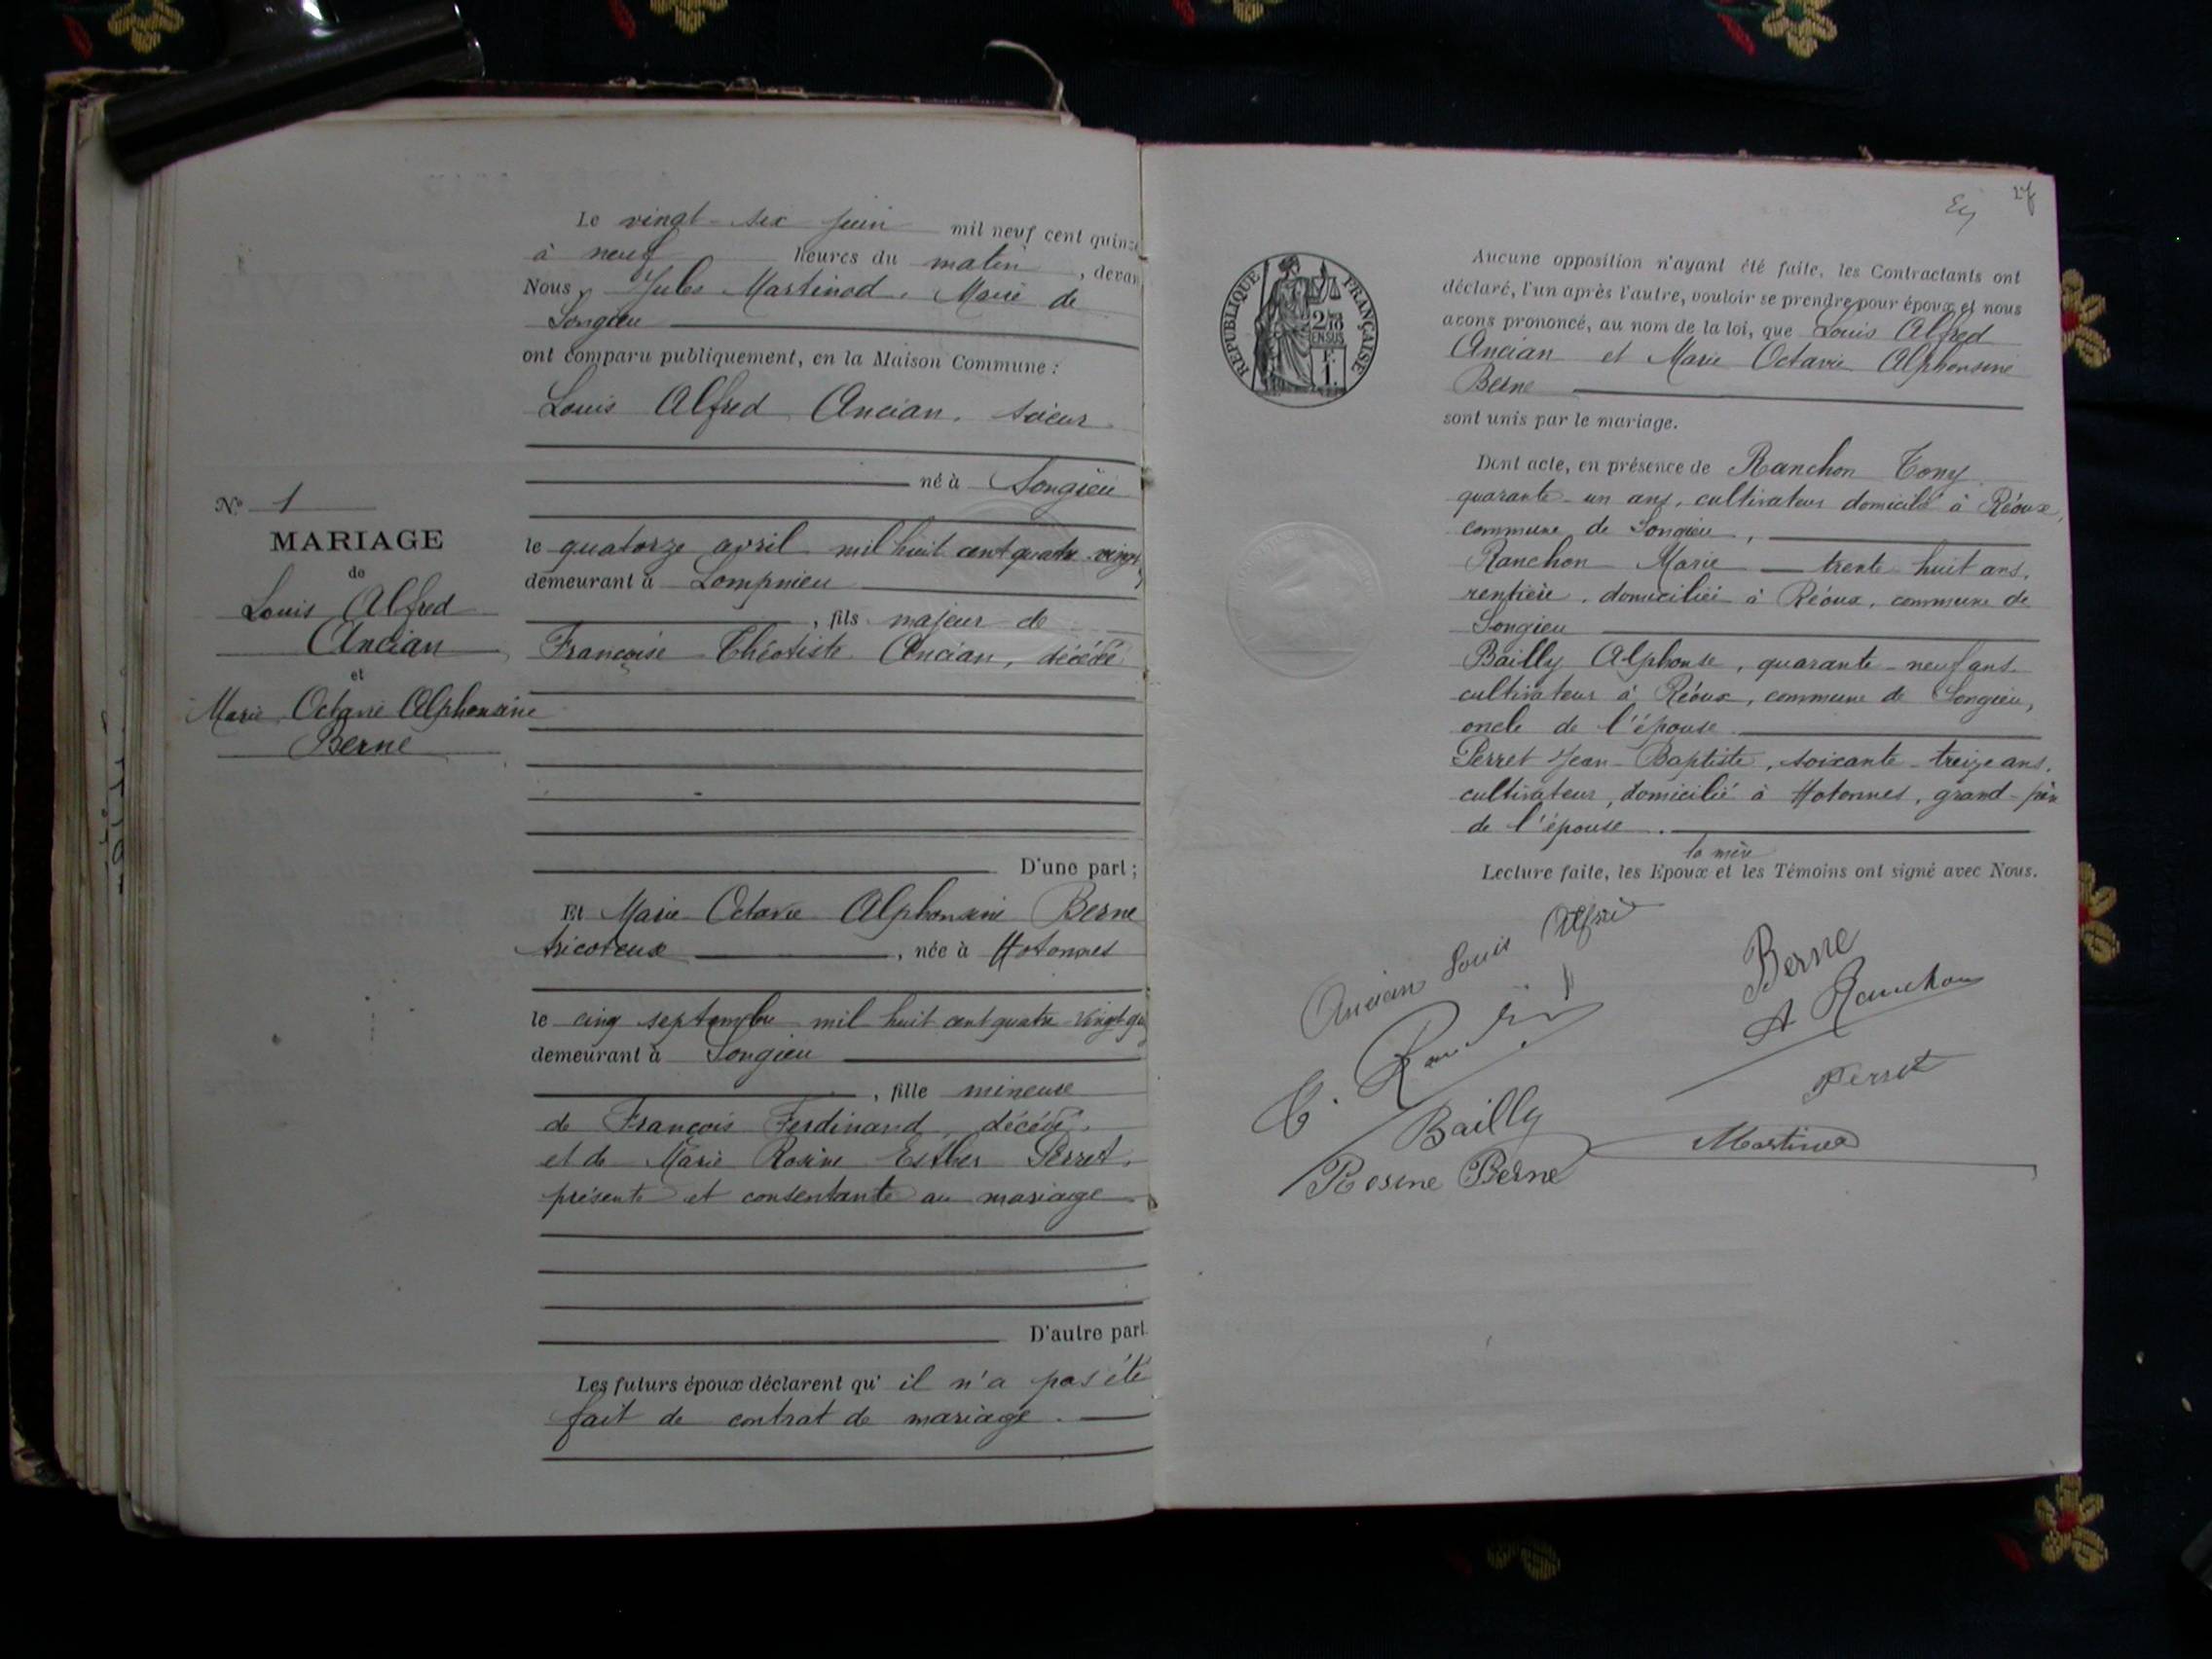 Le vingt-six juin mil neuf cent quinze
à neuf heures du matin, devan
Nous, Jules Martinod, Maire de
Songieu
ont comparu publiquement, en la Maison Commune :
Louis Alfred Ancian, scieur
né à Songieu
le quatorze avril mil huit cent quatre-vingt
demeurant à Lompnieu
, fils majeur de
Françoise Théotiste Ancian, décédé
D'une part ;
Nº 1
MARIAGE
de
Louis Alfred
Ancian
et
Marie Octavie Alphonsine
Berne
Et Marie Octavie Alphonsine Berne
tricoteuse, née à Hotonnes
le cinq septembre mil huit cent quatre-vingt
demeurant à Songieu
, fille mineure
de François Ferdinand, décédé.
et de Marie Rosine Esther Perret,
présente et consentante au mariage
D'autre part
Les futurs époux déclarent qu' il n'a pas été
fait de contrat de mariage.
REPUBLIQUE FRANÇAISE
2/10
EN SUS
F.
1.
Aucune opposition n'ayant été faite, les Contractants ont
déclaré, l'un après l'autre, vouloir se prendre pour époux et nous
avons prononcé, au nom de la loi, que Louis Alfred
Ancian et Marie Octavie Alphonsine
Berne
sont unis par le mariage.
Dont acte, en présence de Ranchon Tony
quarante-un ans, cultivateur domicilié à Réoux,
commune de Songieu,
Ranchon Marie trente huit ans,
rentière, domiciliée à Réoux, commune de
Songieu
Bailly Alphonse, quarante-neuf ans
cultivateur à Réoux, commune de Songieu,
oncle de l'épouse
Perret Jean-Baptiste, soixante-treize ans,
cultivateur, domicilié à Hotonnes, grand-père
de l'épouse.
la mère
Lecture faite, les Epoux et les Témoins ont signé avec Nous.
Ancian Louis Alfred
Berne
A Ranchon
Perret
Bailly
Martinod
Rosine Berne